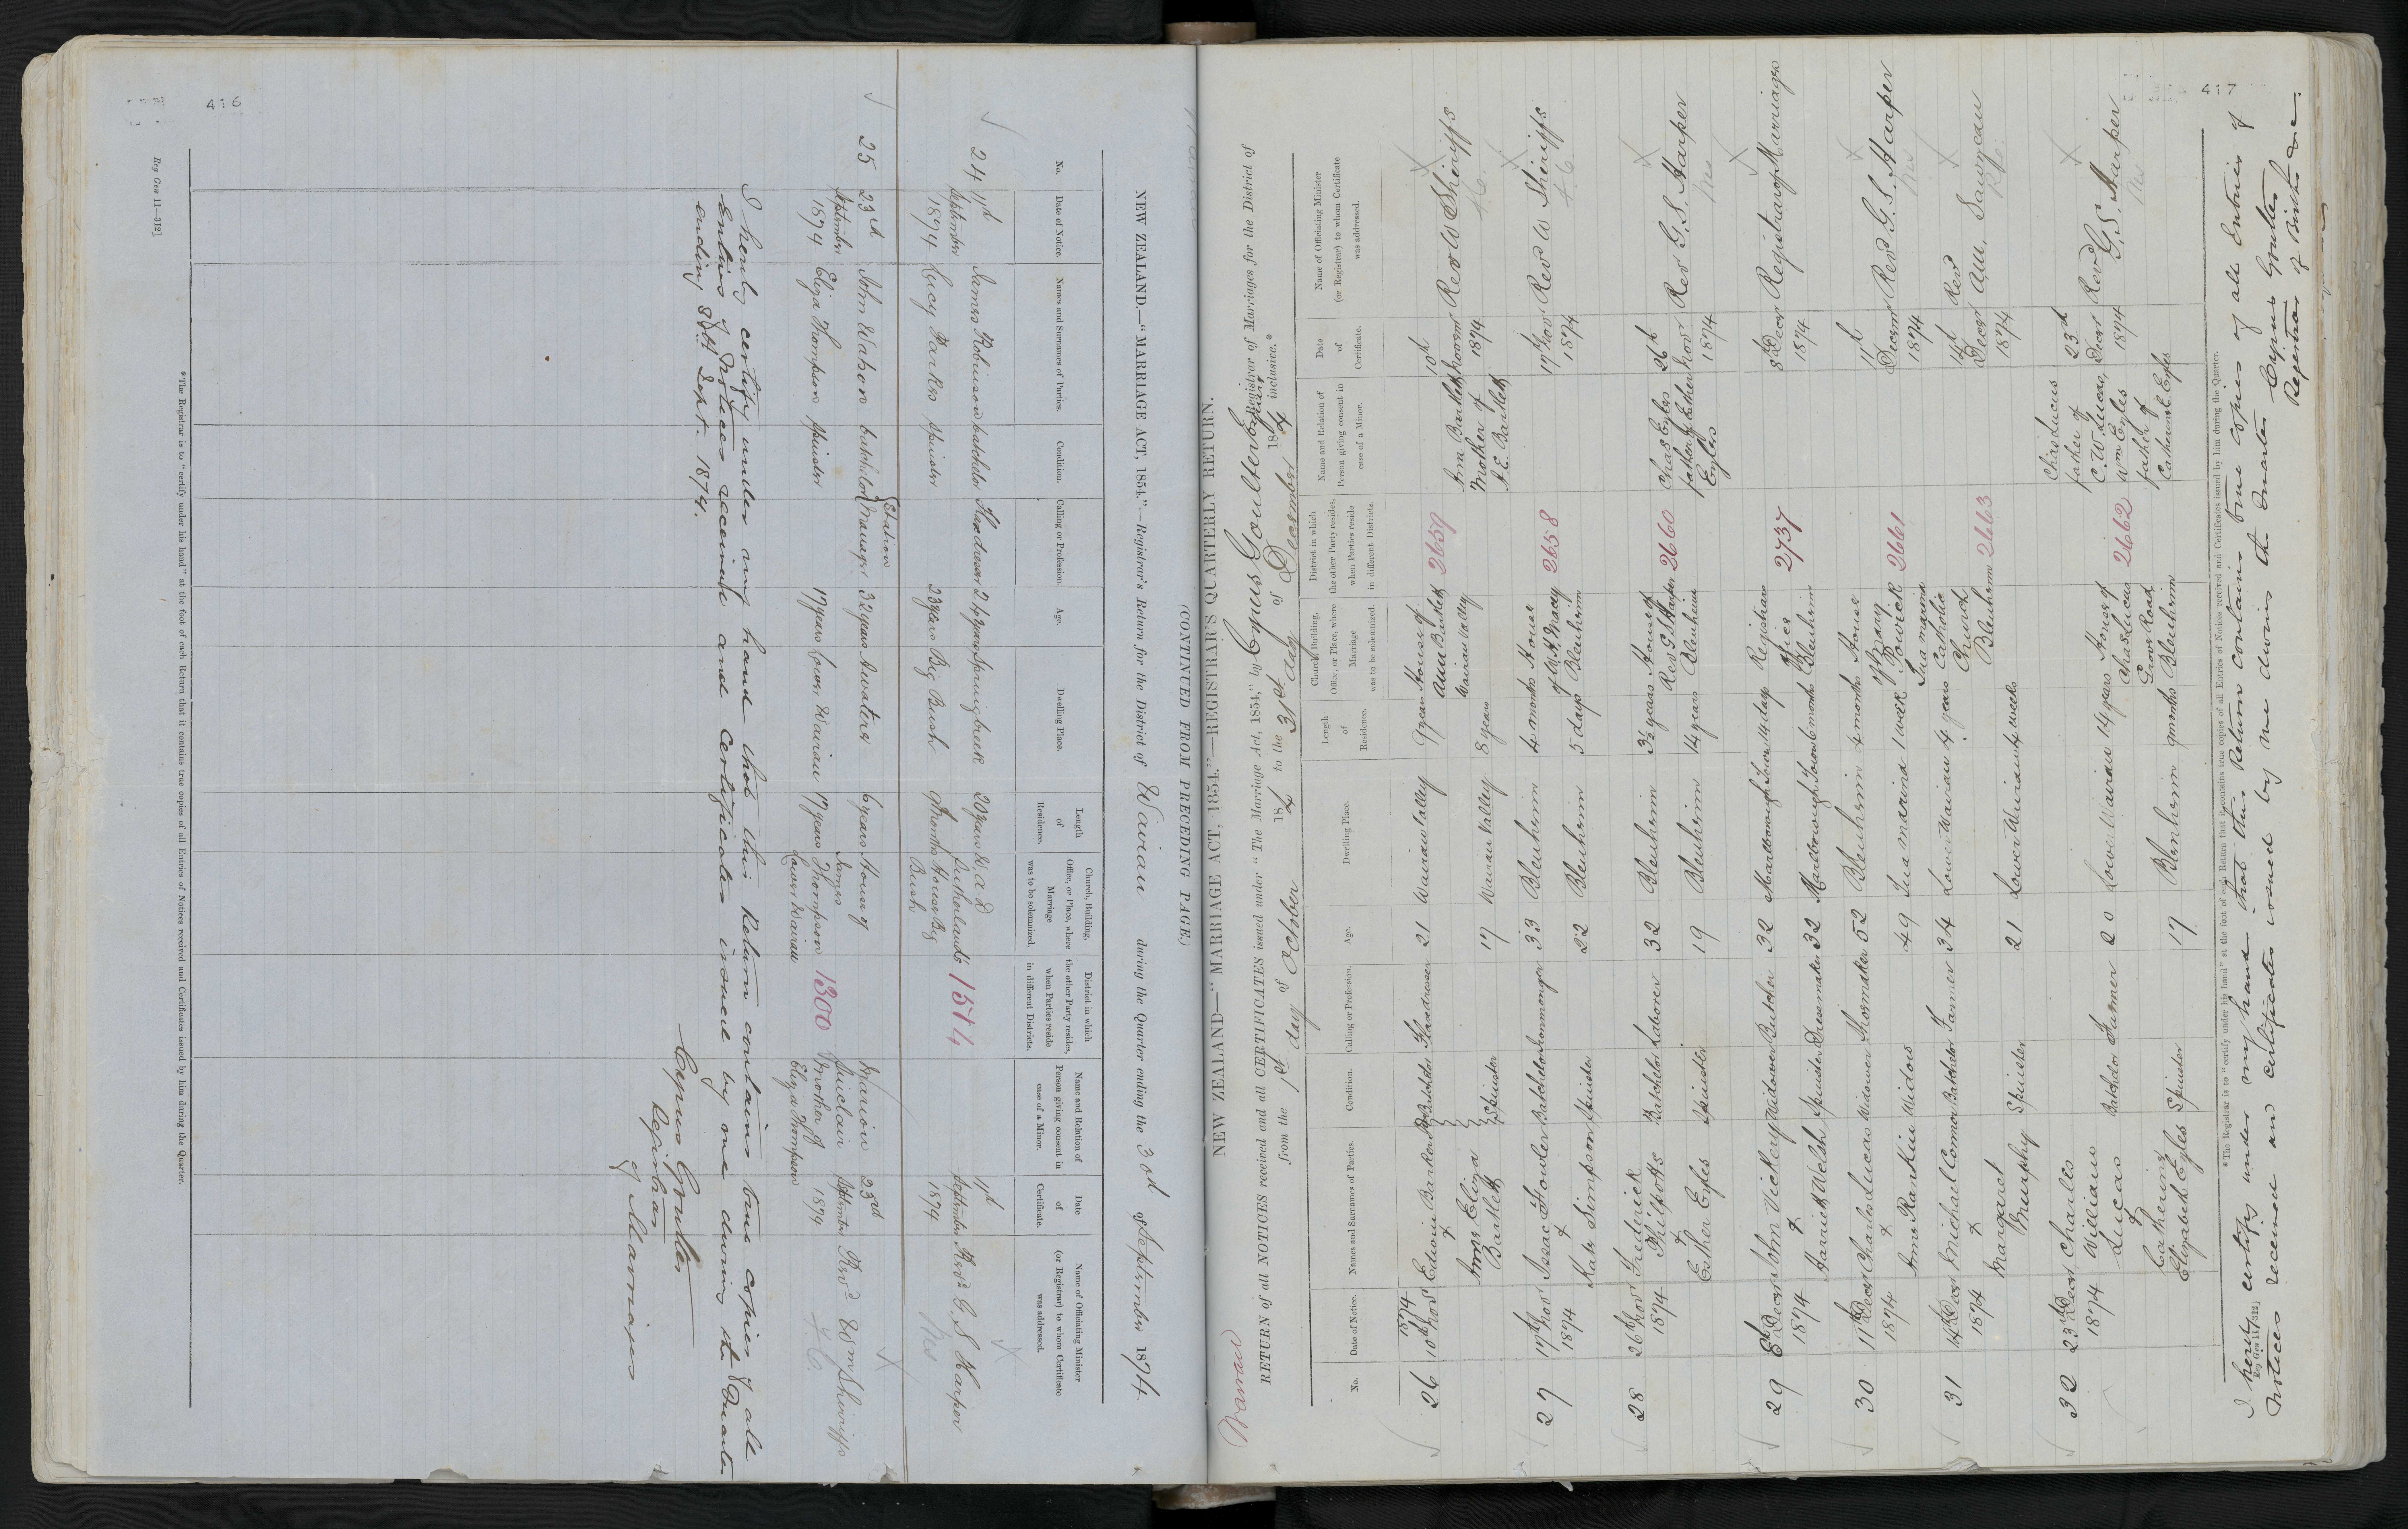 416
(CONTINUED FROM PRECEDING PAGE.)
NEW ZEALAND.—"MARRIAGE ACT, 1854."—Registrar's Return for the District of Wairau during the Quarter ending the 30th of September 1874
No. | Date of Notice. | Names and Surnames of Parties. | Condition. | Calling or Profession. | Age. | Dwelling Place. | Length of Residence. | Church, Building, Office, or Place, where Marriage was to be solemnized. | District in which the other Party resides, when Parties reside in different Districts. | Name and Relation of Person giving consent in case of a Minor. | Date of Certificate. | Name of Officiating Minister (or Registrar) to whom Certificate was addressed.
24 | September 1874 | James Robinson | batchelor | Flaxdresser | Spring Creek | 20 years | 1514 | September 1874 | Revd G. S. Harper
Lucy Parkes | Spinster | 23 years | Big Bush | 9 months | House Big Bush
25 | 23rd September 1874 | John Wahoor | batchelor | Station Manager | 32 years | Awatere | 6 years | House of James Thompson Lower Wairau | 1300 | Marion Sinclair Mother of Eliza Thompson | 23rd September 1874 | Revd Wm Sheriffs
Eliza Thompson | Spinster | 17 years | Lower Wairau | 17 years
I hereby certify under my hand that this Return contains true copies of all
Entries of Notices received and Certificates issued by me during the Quarter
ending 30th Sept. 1874.
Cyrus Goulter
Registrar
of Marriages
*The Registrar is to "certify under his hand" at the foot of each Return that it contains true copies of all Entries of Notices received and Certificates issued by him during the Quarter.
Reg Gen 11—312]
417
Wairau
NEW ZEALAND—"MARRIAGE ACT, 1854."—REGISTRAR'S QUARTERLY RETURN.
RETURN of all NOTICES received and all CERTIFICATES issued under "The Marriage Act, 1854," by Cyrus Goulter Registrar of Marriages for the District of
from the 1st day of October 1874 to the 31st day of December 1874 inclusive.*
No. | Date of Notice. | Names and Surnames of Parties. | Condition. | Calling or Profession. | Age. | Dwelling Place. | Length of Residence. | Church, Building, Office, or Place, where Marriage was to be solemnized. | District in which the other Party resides, when Parties reside in different Districts. | Name and Relation of Person giving consent in case of a Minor. | Date of Certificate. | Name of Officiating Minister (or Registrar) to whom Certificate was addressed.
26 | 1874 10th Novr | Edwin Barker | Batchelor | Flaxdresser | 21 | Wairau Valley | 9 years | House of Ann Bartlett Wairau Valley | 2659 | Ann Bartlett Mother of A. E. Bartlett | 10th Novr 1874 | Rev W Sheriffs
& Ann Eliza Bartlett | Spinster | 17 | Wairau Valley | 8 years
27 | 17th Novr 1874 | Issac Fowler | Batchelor | Ironmonger | 33 | Blenheim | 4 months | House of W. H. Macey Blenheim | 2658 | 17th Nov 1874 | Rev W Sheriffs
& Kate Simpson | Spinster | 22 | Blenheim | 5 days
28 | 26th Novr 1874 | Frederick Philpotts | Batchelor | Laborer | 32 | Blenheim | 3½ years | House of Rev G S Harper Blenheim | 2660 | Chas Eyles father of Esther Eyles | 26th Novr 1874 | Rev G. S. Harper
& Esther Eyles | Spinster | 19 | Blenheim | 14 years
29 | 8th Decr 1874 | John Vickery | Widower | Butcher | 32 | Marlborough Town | 14 days | Registrars Office Blenheim | 2737 | 8th Decr 1874 | Registrar of Marriages
& Harriett Welsh | Spinster | Dressmaker | 32 | Marlborough Town | 6 months
30 | 11th Decr 1874 | Charles Lucas | Widower | Shoemaker | 52 | Blenheim | 4 months | House of Mary Powick Tua marina | 2661 | 11th Decmr 1874 | Rev G. S. Harper
& Ann Rankin | Widow | 49 | Tua marina | 1 week
31 | 14th Decr 1874 | Michael Connor | Batchelor | Farmer | 34 | Lower Wairau | 4 years | Catholic Church Blenheim | 2663 | 14th Decr 1874 | Rev
& Margaret Murphy | Spinster | 21 | Lower Wairau | 4 weeks
32 | 23rd Decr 1874 | Charles William Lucas | Batchelor | Farmer | 20 | Lower Wairau | 14 years | House of Chas Lucas Grove Road Blenheim | 2662 | Chas Lucas father of C. W. Lucas, Wm Eyles father of Catherine E. Eyles | 23rd Decr 1874 | Revd G. S. Harper
& Catherine Elizabeth Eyles | Spinster | 17 | Blenheim | 9 months
*The Registrar is to "certify under his hand" at the foot of each Return that it contains true copies of all Entries of Notices received and Certificates issued by him during the Quarter.
Reg Gen 11—312]
I hereby certify under my hand that this Return contains true copies of all Entries of
Notices received and certificates issued by me during the Quarter Cyrus Goulter
Registrar of Births &c